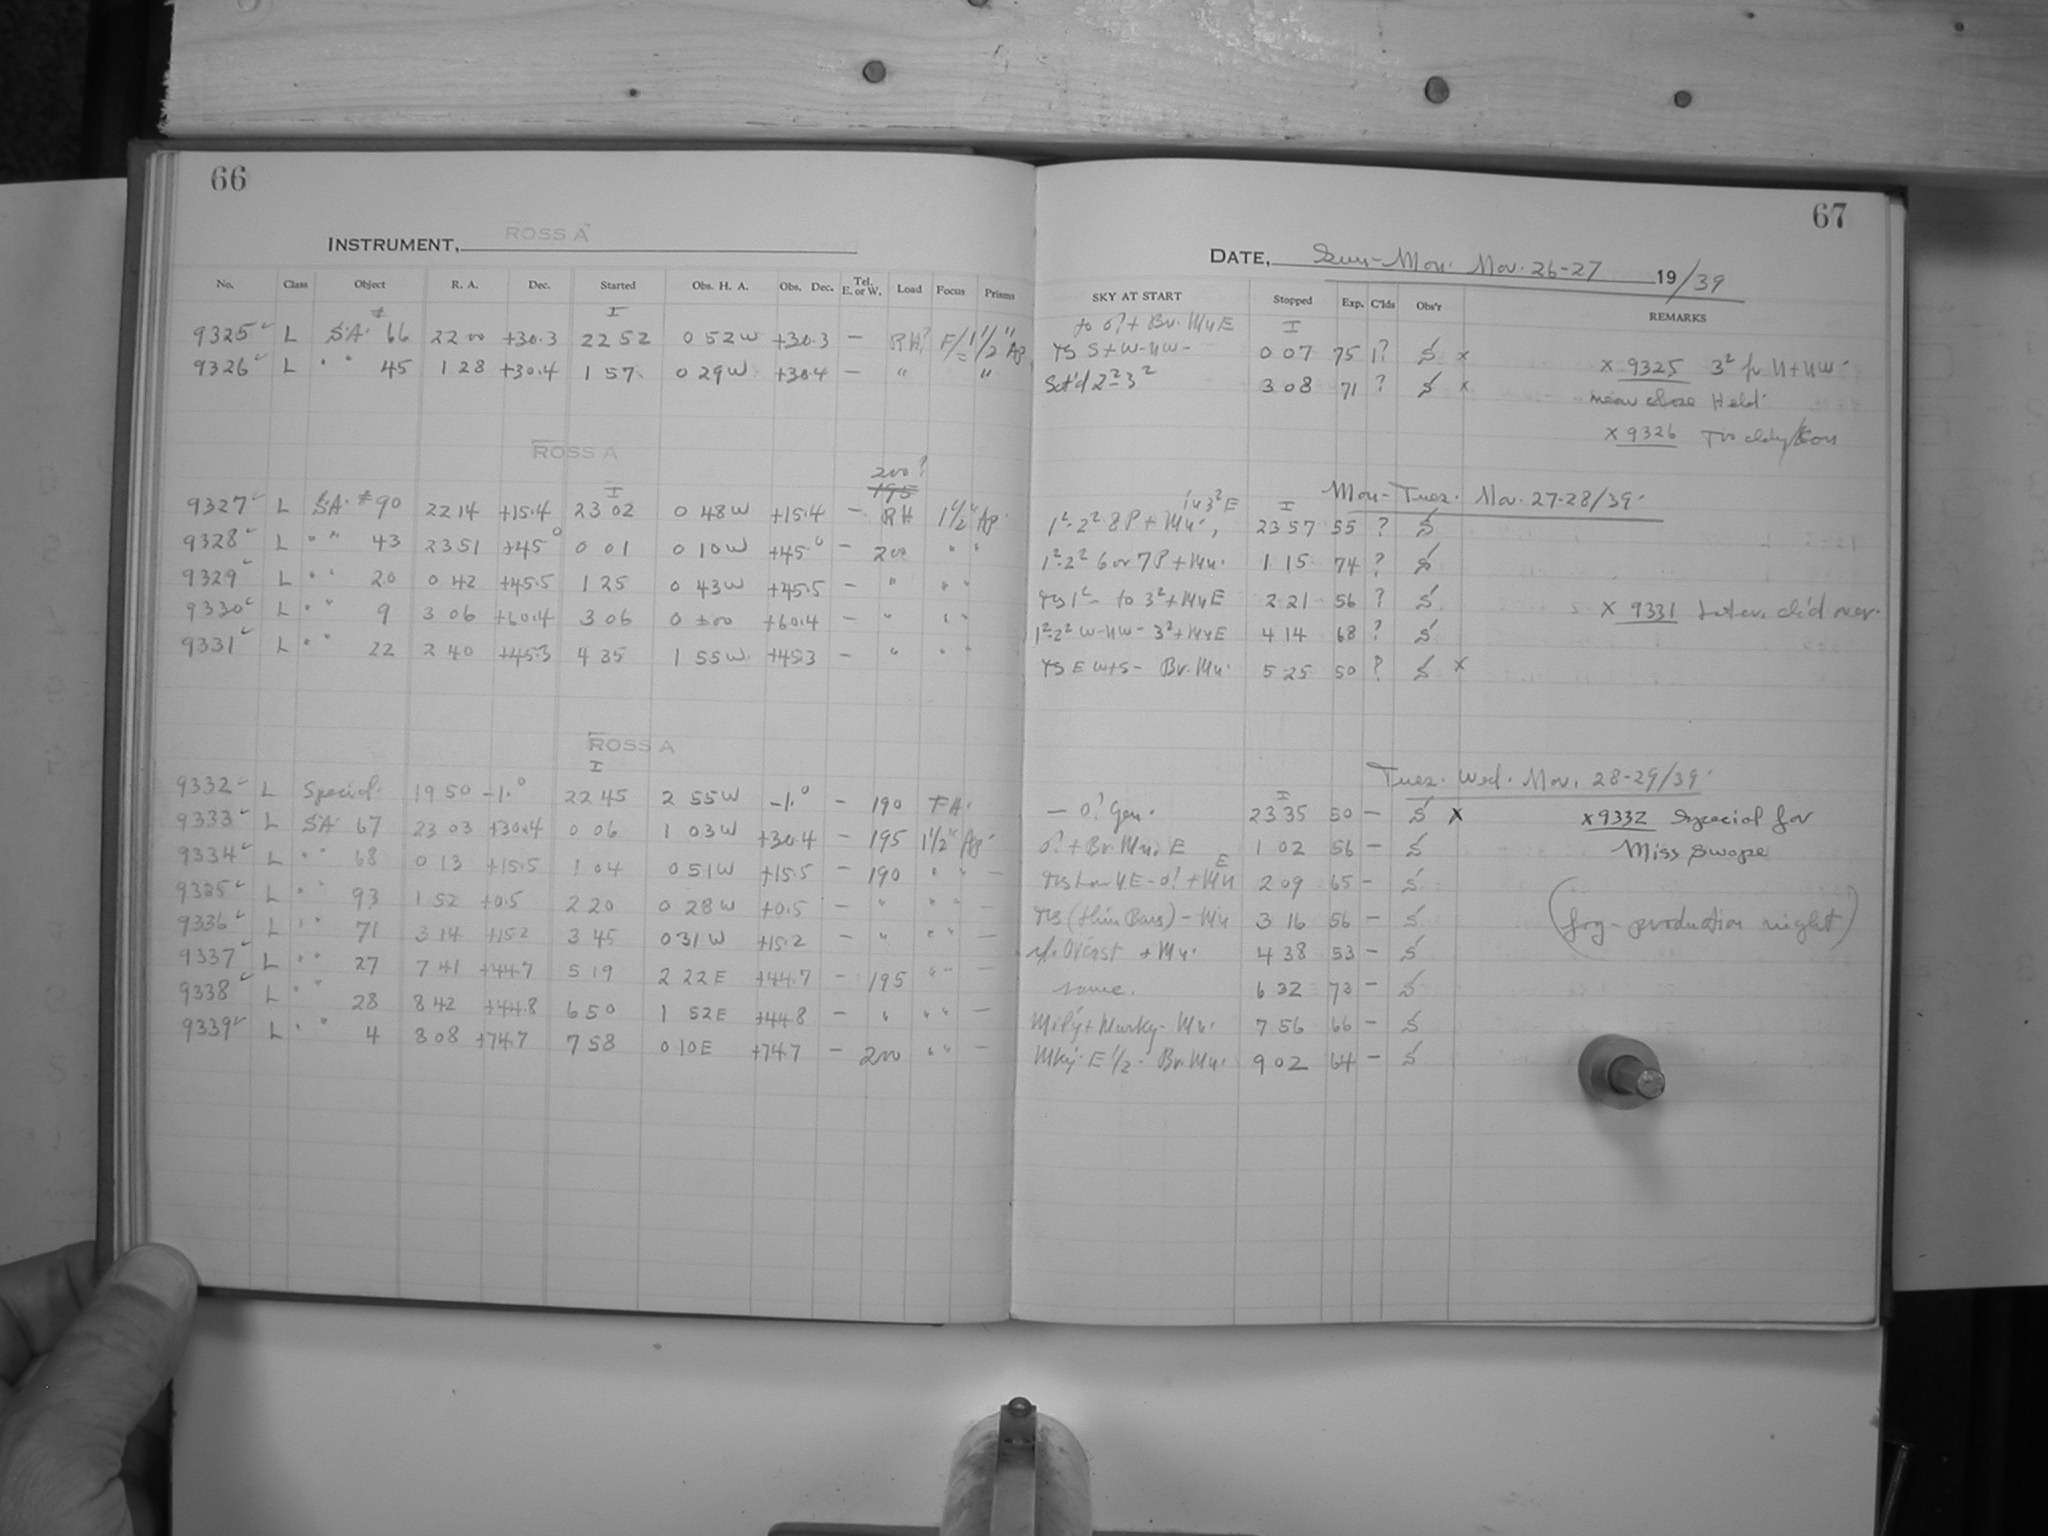 66
INSTRUMENT, ROSS A
No. Class Object R. A. Dec. Started Obs. H. A. Obs. Dec. Tel. E. or W. Load Focus Prisms
I
9325 L S.A. # 66 22 00 +30.3 22 52 0 52 W +30.3 — RH? F/= 1 1/2" Ap
9326 L " " 45 1 28 +30.4 1 57 0 29 W +30.4 — " "
ROSS A
200?
195
I
9327 L S.A. # 90 22 14 +15.4 23 02 0 48 W +15.4 — RH 1 1/2" Ap
9328 L " " 43 23 51 +45° 0 01 0 10 W +45° — 200 " "
9329 L " " 20 0 42 +45.5 1 25 0 43 W +45.5 — " " "
9330 L " " 9 3 06 +60.4 3 06 0 ±00 +60.4 — " " "
9331 L " " 22 2 40 +45.3 4 35 1 55 W +45.3 — " " "
ROSS A
I
9332 L Special 19 50 -1.° 22 45 2 55 W -1.° — 190 FA.
9333 L SA 67 23 03 +30.4 0 06 1 03 W +30.4 — 195 1 1/2" Ap
9334 L " " 68 0 13 +15.5 1 04 0 51 W +15.5 — 190 " " —
9335 L " " 93 1 52 +0.5 2 20 0 28 W +0.5 — " " " —
9336 L " " 71 3 14 +15.2 3 45 0 31 W +15.2 — " " " —
9337 L " " 27 7 41 +44.7 5 19 2 22 E +44.7 — 195 " " —
9338 L " " 28 8 42 +44.8 6 50 1 52 E +44.8 — " " " —
9339 L " " 4 8 08 +74.7 7 58 0 10 E +74.7 — 200 " " —
67
DATE, Sun-Mon. Nov. 26-27 19/39
SKY AT START Stopped Exp. C'lds Obs'r REMARKS
to 0! + Br. Mn E I
TS S+W-NW- 0 07 75 1? S x x 9325 3² p N+NW
Sct'd 2²-3² 3 08 71 ? S x near close Held
x 9326
Mon-Tues. Nov. 27-28/39.
in 3² E I
1²-2² 8P + Mn., 23 57 55 ? S
1²-2² 6 or 7P + Mn. 1 15 74 ? S
TS 1²- to 3²+Mn E 2 21 56 ? S x 9331 Inter. cl'd over.
1²-2² W-NW- 3²+Mn E 4 14 68 ? S
TS E W+S- Br. Mn. 5 25 50 ? S x
Tues. Wed. Nov. 28-29/39.
I
— 0! Gen. 23 35 50 — S x x 9332 Special for
0! + Br. Mn. E 1 02 56 — S Miss Swope
TS Low NE - 0! + Mn E 2 09 65 — S
TS (thin Bars) - Mn 3 16 56 — S (fog-production night)
Ov'cast + Mn. 4 38 53 — S
same. 6 32 73 — S
Milky + Murky- Mn. 7 56 66 — S
Mky E 1/2. Br. Mn. 9 02 64 — S